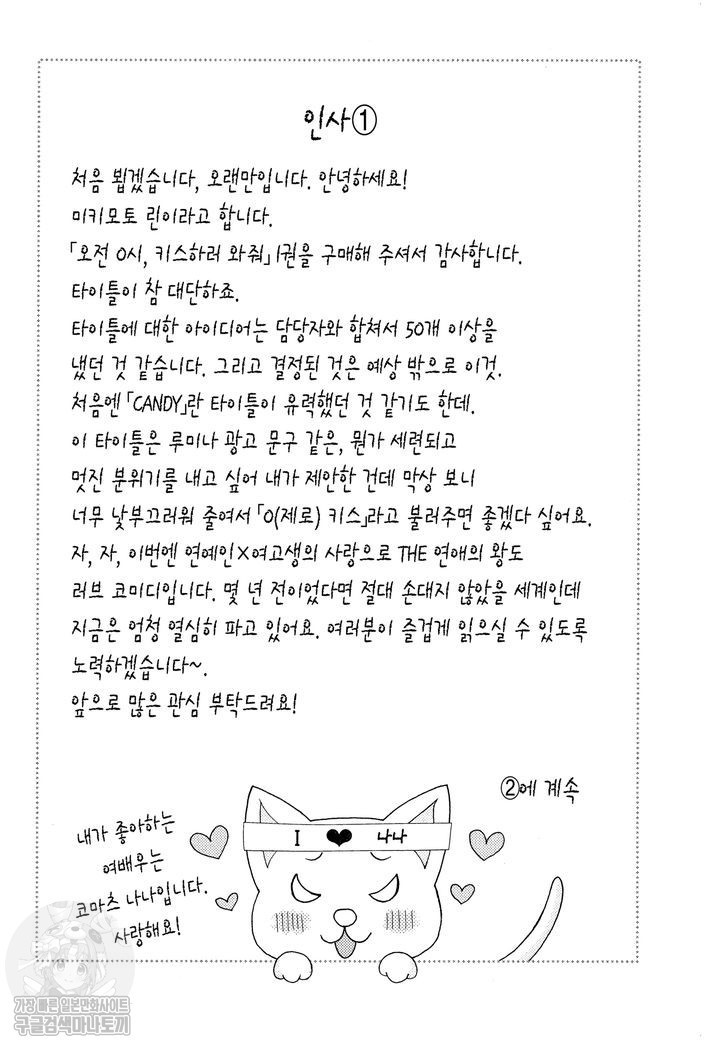 인사①
처음 뵙겠습니다, 오랜만입니다. 안녕하세요!
미키모토 린이라고 합니다.
「오전 0시, 키스하러 와줘」 1권을 구매해 주셔서 감사합니다.
타이틀이 참 대단하죠.
타이틀에 대한 아이디어는 담당자와 합쳐서 50개 이상을
냈던 것 같습니다. 그리고 결정된 것은 예상 밖으로 이것.
처음엔 「CANDY」란 타이틀이 유력했던 것 같기도 한데.
이 타이틀은 루미나 광고 문구 같은, 뭔가 세련되고
멋진 분위기를 내고 싶어 내가 제안한 건데 막상 보니
너무 낯부끄러워 줄여서 「0(제로) 키스」라고 불러주면 좋겠다 싶어요.
자, 자, 이번엔 연예인×여고생의 사랑으로 THE 연애의 왕도
러브 코미디입니다. 몇 년 전이었다면 절대 손대지 않았을 세계인데
지금은 엄청 열심히 파고 있어요. 여러분이 즐겁게 읽으실 수 있도록
노력하겠습니다~.
앞으로 많은 관심 부탁드려요!
②에 계속
I ♥ 나나
내가 좋아하는
여배우는
코마츠 나나입니다.
사랑해요!
가장 빠른 일본만화사이트
구글검색마나토끼